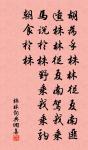 胡為乎株林從夏南匪
適株林從夏南駕我乘
馬說於株野乘我乘駒
朝食於株